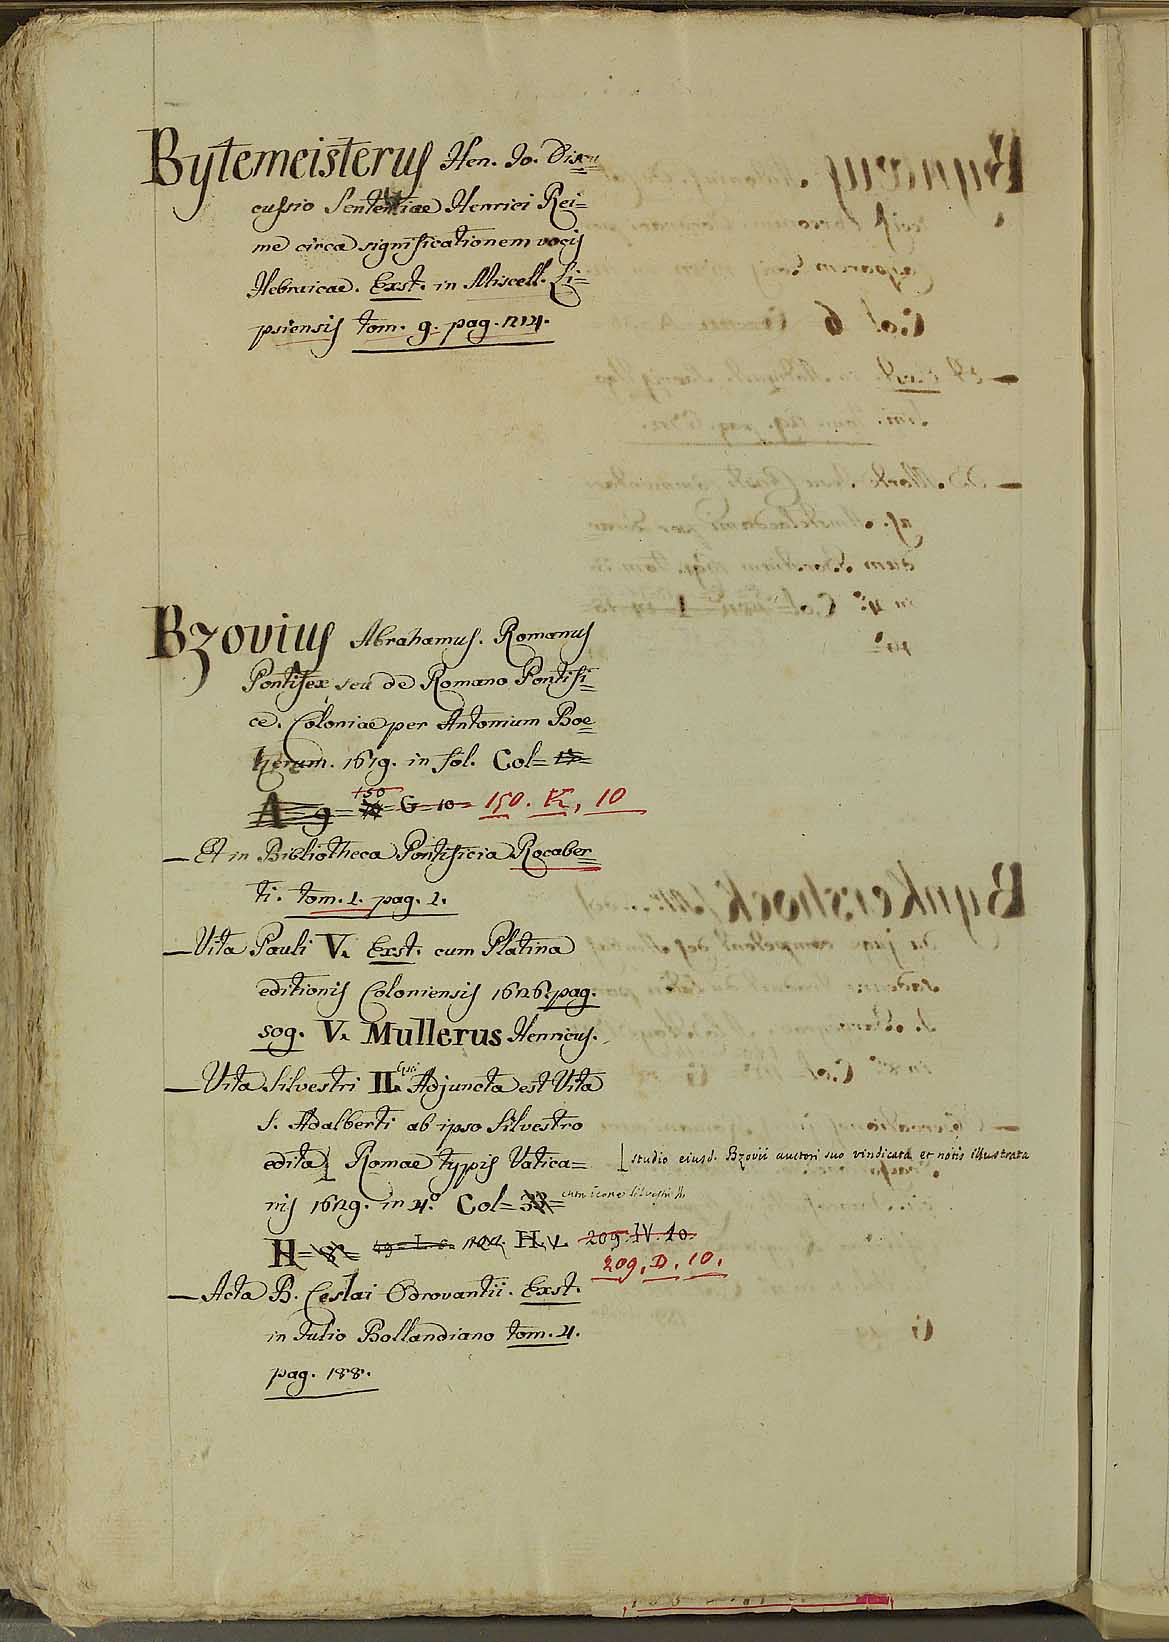 Bytemeisterus Hen. Io. Discu=
cussio Sententiae Henrici Rei=
me circa significationem vocis
Hebraicae. Exst. in Miscell. Li=
psiensis tom. 9. pag. 214.
Bzovius Abrahamus. Romanus
Pontifex seu de Romano Pontifi=
ce. Coloniae per Antonium Boe=
tzerum. 1619. in fol. Col=
A 9= G 10= 150. K, 10
— Et in Bibliotheca Pontificia Rocaber=
ti. tom. 1. pag. 1.
— Vita Pauli V. Exst. cum Platina
editionis Coloniensis 1626. pag.
509. V. Mullerus Henricus.
— Vita Silvestri II. Adjuncta est Vita
S. Adalberti ab ipso Silvestro
edita Romae typis Vatica=
studio eiusd. Bzovii auctori suo vindicata et notis illustrata
nis 1629. in 4.° Col= 33= cum icone Silvestri II.
H= 8= H. V. 209. IV. 10.
209. D. 10.
— Acta B. Ceslai Odrovantii. Exst.
in Iulio Bollandiano tom. 4.
pag. 188.